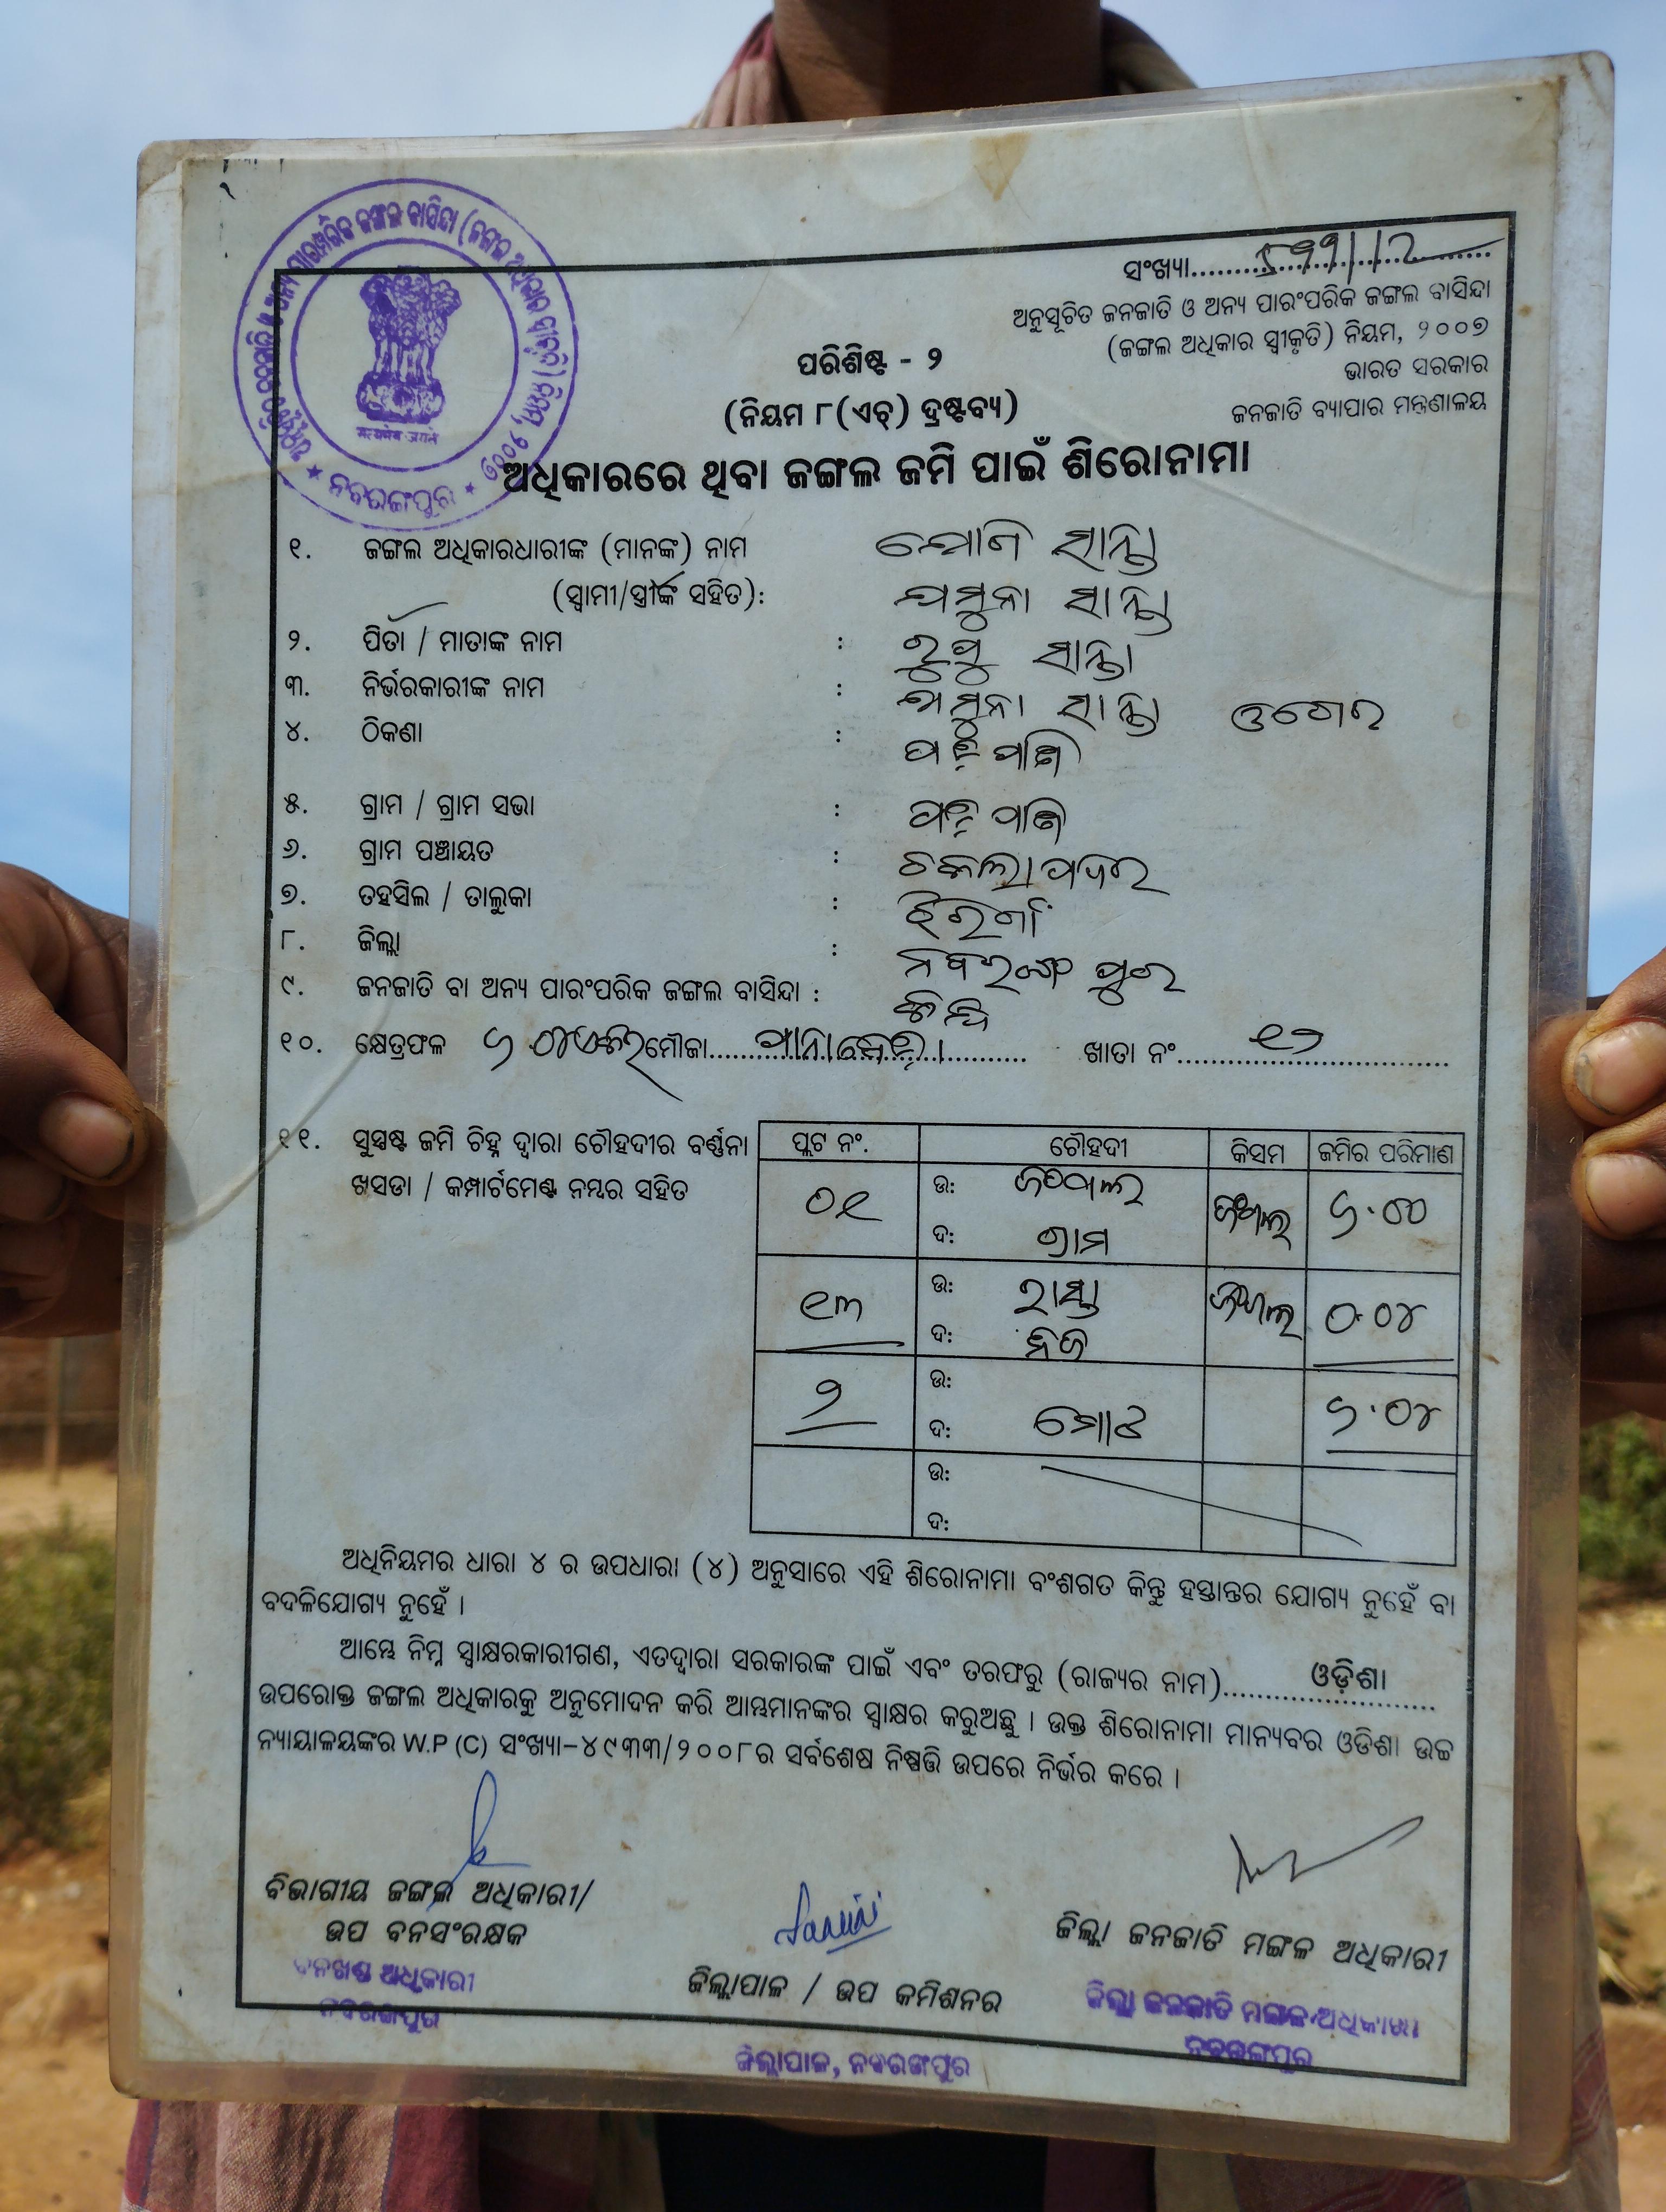 ସଂଖ୍ୟା
ଅନୁସୂଚିତ ଜନଜାତି ଓ ଅନ୍ୟ ପାରଂପରିକ ଜଙ୍ଗଲ ବାସିନ୍ଦା
(ଜଙ୍ଗଲ ଅଧିକାର ସ୍ୱୀକୃତି) ନିୟମ, ୨୦୦୭
ଭାରତ ସରକାର
ଜନଜାତି ବ୍ୟାପାର ମନ୍ତ୍ରଣାଳୟ
ପରିଶିଷ୍ଟ - ୨
(ନିୟମ ୮(ଏଚ୍) ଦ୍ରଷ୍ଟବ୍ୟ)
ନବରଙ୍ଗପୁର
ଅଧିକାରରେ ଥିବା ଜଙ୍ଗଲ ଜମି ପାଇଁ ଶିରୋନାମା
୧. ଜଙ୍ଗଲ ଅଧିକାରଧାରୀଙ୍କ (ମାନଙ୍କ) ନାମ ସାନ୍ତା
(ସ୍ୱାମୀ/ସ୍ତ୍ରୀଙ୍କ ସହିତ): ଯମୁନା ସାନ୍ତା
୨. ପିତା / ମାତାଙ୍କ ନାମ : ସାନ୍ତା
୩. ନିର୍ଭରକାରୀଙ୍କ ନାମ : ଯମୁନା ସାନ୍ତା
୪. ଠିକଣା :
୫. ଗ୍ରାମ / ଗ୍ରାମ ସଭା :
୬. ଗ୍ରାମ ପଞ୍ଚାୟତ : ଚକଲାପଦର
୭. ତହସିଲ / ତାଲୁକା : ଝରିଗାଁ
୮. ଜିଲ୍ଲା : ନବରଙ୍ଗପୁର
୯. ଜନଜାତି ବା ଅନ୍ୟ ପାରଂପରିକ ଜଙ୍ଗଲ ବାସିନ୍ଦା :
୧୦. କ୍ଷେତ୍ରଫଳ ୬.୦୪ ମୌଜା ଖାତା ନଂ ୧୨
୧୧. ସୁସ୍ପଷ୍ଟ ଜମି ଚିହ୍ନ ଦ୍ୱାରା ଚୌହଦୀର ବର୍ଣ୍ଣନା
ଖସଡା / କମ୍ପାର୍ଟମେଣ୍ଟ ନମ୍ଭର ସହିତ
ପ୍ଲଟ ନଂ. ଚୌହଦୀ କିସମ ଜମିର ପରିମାଣ
୦୧ ଉ: ଜଙ୍ଗଲ ଜଙ୍ଗଲ ୬.୦୦
ଦ: ଗ୍ରାମ
୧୩ ଉ: ରାସ୍ତା ଜଙ୍ଗଲ ୦.୦୪
ଦ: ନିଜ
୨ ଉ: ୬.୦୪
ଦ: ମୋଟ
ଉ:
ଦ:
ଅଧିନିୟମର ଧାରା ୪ ର ଉପଧାରା (୪) ଅନୁସାରେ ଏହି ଶିରୋନାମା ବଂଶଗତ କିନ୍ତୁ ହସ୍ତାନ୍ତର ଯୋଗ୍ୟ ନୁହେଁ ବା
ବଦଳିଯୋଗ୍ୟ ନୁହେଁ ।
ଆମ୍ଭେ ନିମ୍ନ ସ୍ୱାକ୍ଷରକାରୀଗଣ, ଏତଦ୍ୱାରା ସରକାରଙ୍କ ପାଇଁ ଏବଂ ତରଫରୁ (ରାଜ୍ୟର ନାମ) ଓଡ଼ିଶା
ଉପରୋକ୍ତ ଜଙ୍ଗଲ ଅଧିକାରକୁ ଅନୁମୋଦନ କରି ଆମ୍ଭମାନଙ୍କର ସ୍ୱାକ୍ଷର କରୁଅଛୁ । ଉକ୍ତ ଶିରୋନାମା ମାନ୍ୟବର ଓଡିଶା ଉଚ୍ଚ
ନ୍ୟାୟାଳୟଙ୍କର W.P (C) ସଂଖ୍ୟା-୪୯୩୩/୨୦୦୮ର ସର୍ବଶେଷ ନିଷ୍ପତ୍ତି ଉପରେ ନିର୍ଭର କରେ ।
ବିଭାଗୀୟ ଜଙ୍ଗଲ ଅଧିକାରୀ/
ଉପ ବନସଂରକ୍ଷକ
ବନଖଣ୍ଡ ଅଧିକାରୀ
ନବରଙ୍ଗପୁର
ଜିଲ୍ଲାପାଳ / ଉପ କମିଶନର
ଜିଲ୍ଲାପାଳ, ନବରଙ୍ଗପୁର
ଜିଲ୍ଲା ଜନଜାତି ମଙ୍ଗଳ ଅଧିକାରୀ
ଜିଲ୍ଲା ଜନଜାତି ମଙ୍ଗଳ ଅଧିକାରୀ
ନବରଙ୍ଗପୁର